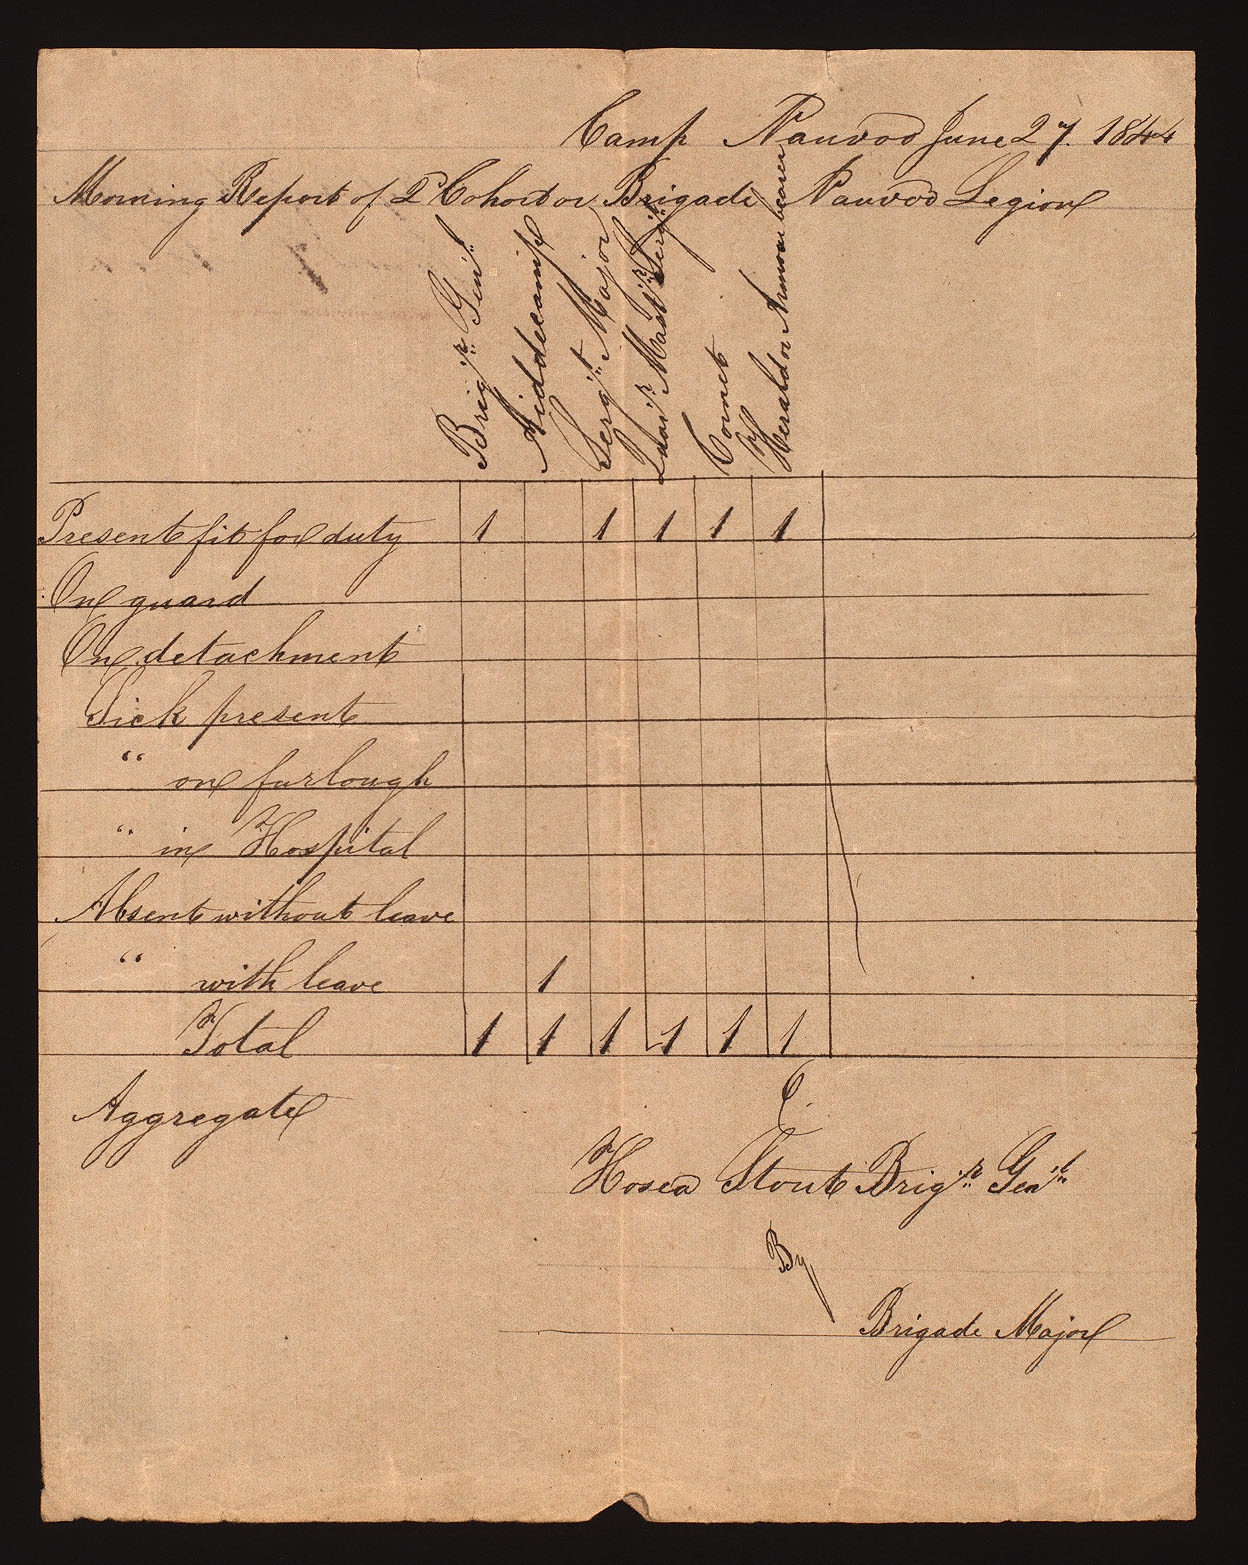 Camp Nauvoo June 27. 1844
Morning Report of 2d Cohort or Brigade Nauvoo Legion
Brigr Genl
Aiddecamp
Sergt Major
Quar Mast Sergt
Cornet
Herald or Armour bearer
Present fit for duty 1 1 1 1 1
On guard
On detachment
Sick present
" on furlough
" in Hospital
Absent without leave
" with leave 1
Total 1 1 1 1 1 1
Aggregate
Hosea Stout Brigr Genl
By
Brigade Major